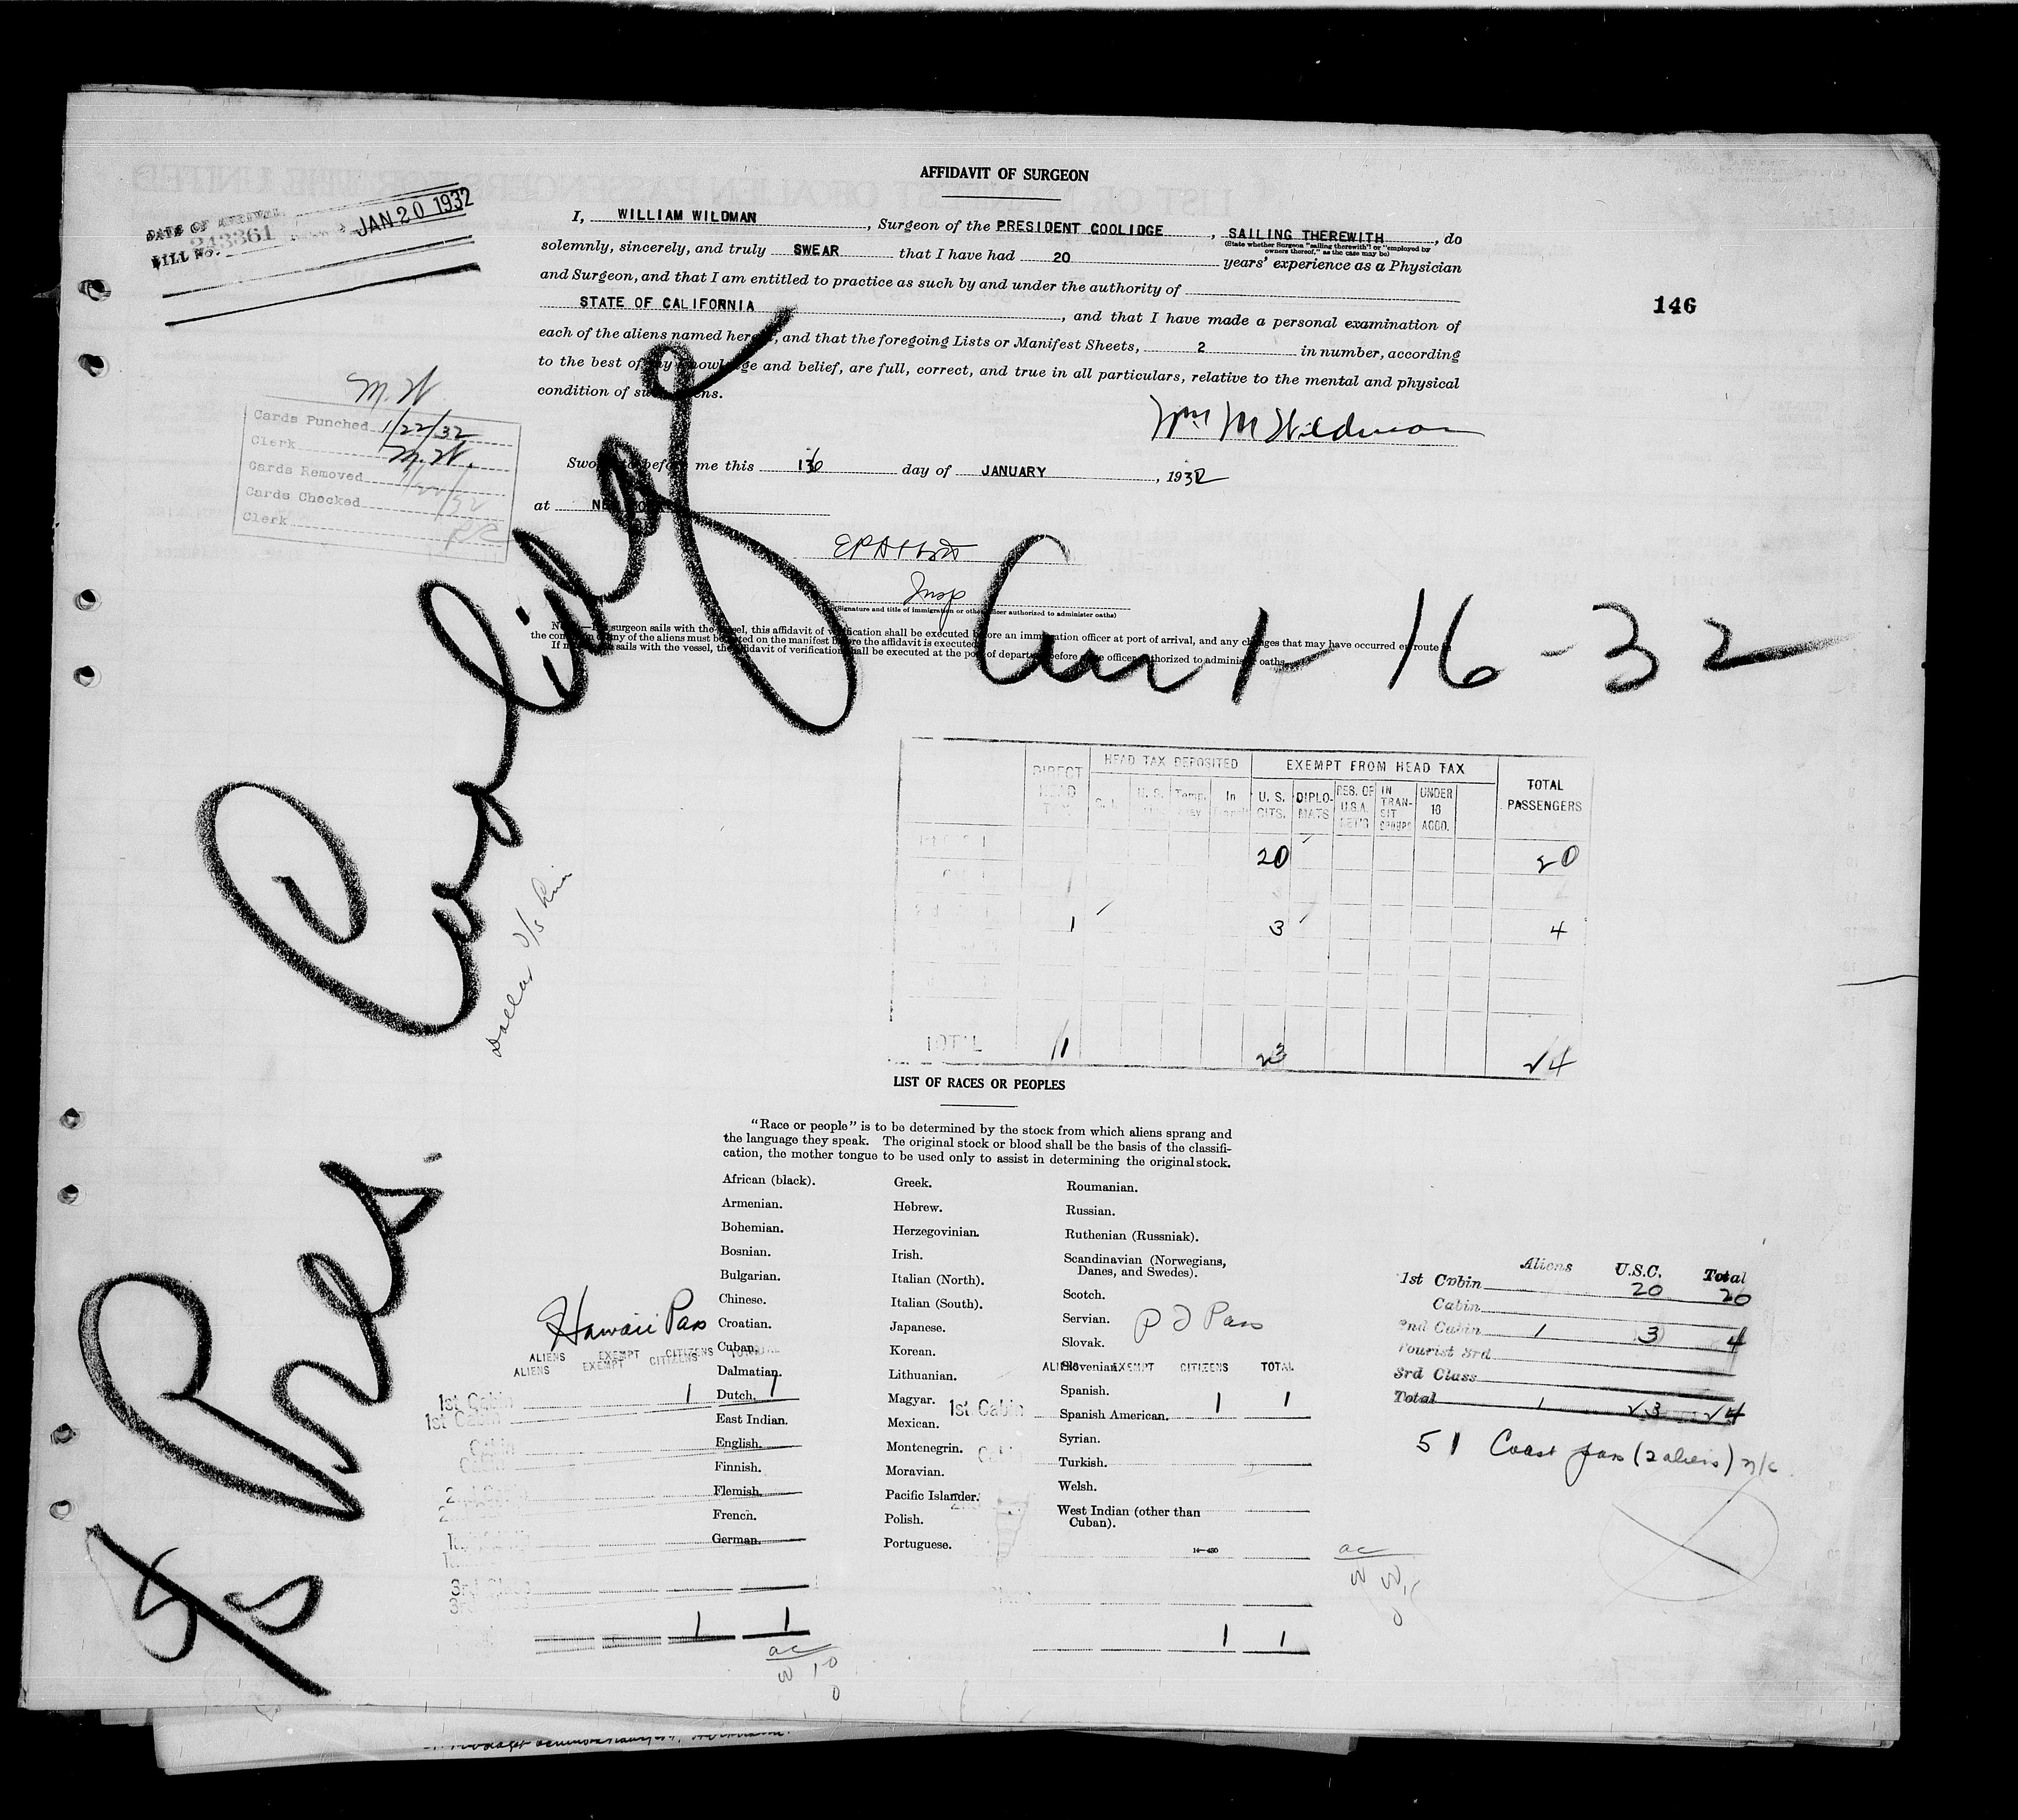 AFFIDAVIT OF SURGEON
DATE OF ARRIVAL
JAN 20 1932
243361
BILL No.
I, WILLIAM WILDMAN, Surgeon of the PRESIDENT COOLIDGE, SAILING THEREWITH, do
(State whether Surgeon "sailing therewith" or "employed by owners thereof," as the case may be)
solemnly, sincerely, and truly SWEAR that I have had 20 years' experience as a Physician
and Surgeon, and that I am entitled to practice as such by and under the authority of
STATE OF CALIFORNIA, and that I have made a personal examination of
each of the aliens named herein, and that the foregoing Lists or Manifest Sheets, 2 in number, according
to the best of my knowledge and belief, are full, correct, and true in all particulars, relative to the mental and physical
condition of such aliens.
146
Wm M Wildman
Sworn to before me this 16 day of JANUARY, 1932
at NEW YORK
Insp
(Signature and title of immigration or other officer authorized to administer oaths)
M. W.
Cards Punched 1/22/32
Clerk M. W.
Cards Removed 1/22/32
Cards Checked
Clerk
NOTE.—If surgeon sails with the vessel, this affidavit of verification shall be executed before an immigration officer at port of arrival, and any changes that may have occurred en route in
the condition of any of the aliens must be noted on the manifest before the affidavit is executed.
If no surgeon sails with the vessel, the affidavit of verification shall be executed at the port of departure before some officer authorized to administer oaths.
S/S Pres. Coolidge
Arr 1-16-32
Dollar S/S Line
DIRECT HEAD TAX
HEAD TAX DEPOSITED
EXEMPT FROM HEAD TAX
TOTAL PASSENGERS
S. I. U. S. Temp. In Transit
U. S. CITS. DIPLO-MATS RES. OF U.S.A. RET'G IN TRAN-SIT GROUPS UNDER 16 ACCO.
20 20
1 3 4
TOTAL 1 23 24
LIST OF RACES OR PEOPLES
"Race or people" is to be determined by the stock from which aliens sprang and
the language they speak. The original stock or blood shall be the basis of the classifi-
cation, the mother tongue to be used only to assist in determining the original stock.
African (black).
Armenian.
Bohemian.
Bosnian.
Bulgarian.
Chinese.
Croatian.
Cuban.
Dalmatian.
Dutch.
East Indian.
English.
Finnish.
Flemish.
French.
German.
Greek.
Hebrew.
Herzegovinian.
Irish.
Italian (North).
Italian (South).
Japanese.
Korean.
Lithuanian.
Magyar.
Mexican.
Montenegrin.
Moravian.
Pacific Islander.
Polish.
Portuguese.
Roumanian.
Russian.
Ruthenian (Russniak).
Scandinavian (Norwegians,
Danes, and Swedes).
Scotch.
Servian.
Slovak.
Slovenian.
Spanish.
Spanish American.
Syrian.
Turkish.
Welsh.
West Indian (other than
Cuban).
14—430
Hawaii Pass
ALIENS EXEMPT CITIZENS TOTAL
ALIENS EXEMPT CITIZENS
1st Cabin 1 1
1st Cabin
Cabin
3rd Class
3rd Class
1 1
P I Pass
ALIENS EXEMPT CITIZENS TOTAL
1st Cabin 1 1
1 1
Aliens U.S.C. Total
1st Cabin 20 20
Cabin
2nd Cabin 1 3 4
Tourist 3rd
3rd Class
Total 1 23 24
51 Coast pass (2 aliens) n/c